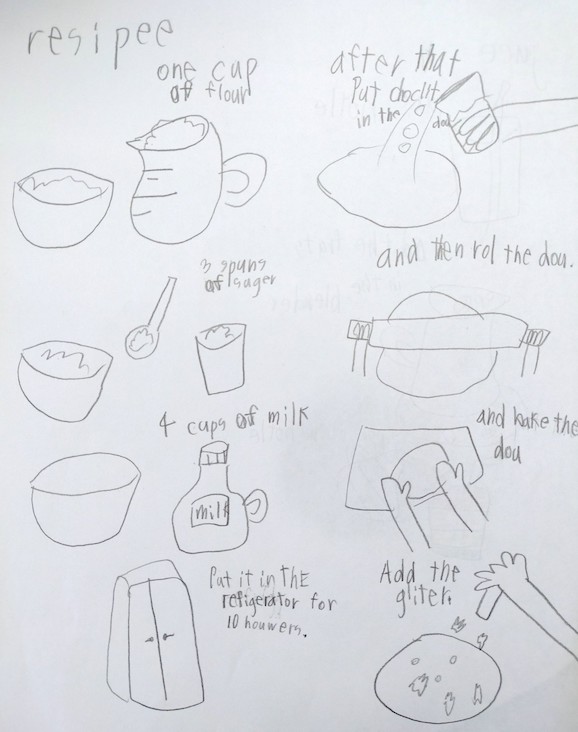 resipee
one cup
of flour
3 spuns
of suger
4 cups of milk
milk
Put it in thE
refigerator for
10 houwers.
after that
Put choclit
in the dou
and then rol the dou.
and bake the
dou
Add the
gliter.